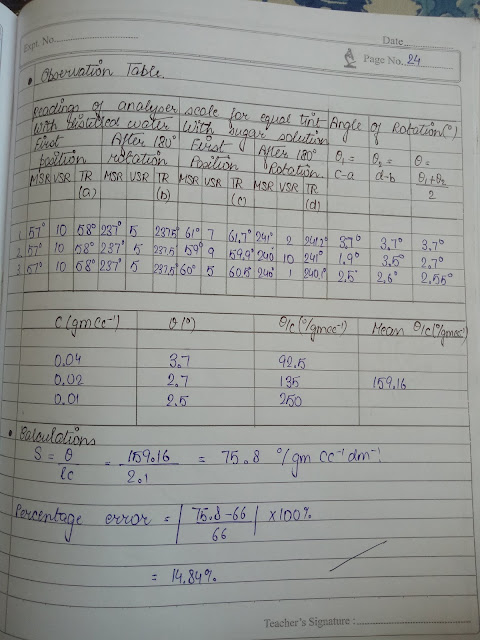 Expt. No.
Date
Page No. 24
• Observation Table.
Readings of analyser scale for equal tint
With distilled water With sugar solution
Angle of Rotation(°)
First position After 180° rotation First Position After 180° Rotation θ₁ = c-a θ₂ = d-b θ = θ₁+θ₂/2
MSR VSR TR (a) MSR VSR TR (b) MSR VSR TR (c) MSR VSR TR (d)
1. 57° 10 58° 237° 5 237.5° 61° 7 61.7° 241° 2 241.2° 3.7° 3.7° 3.7°
2. 57° 10 58° 237° 5 237.5° 59° 9 59.9° 240° 10 241° 1.9° 3.5° 2.7°
3. 57° 10 58° 237° 5 237.5° 60° 5 60.5° 240° 1 240.1° 2.5° 2.6° 2.55°
C (gmcc⁻¹) θ(°) θ/c (°/gmcc⁻¹) Mean θ/c (°/gmcc⁻¹)
0.04 3.7 92.5
0.02 2.7 135 159.16
0.01 2.5 250
• Calculations
S = θ/lc = 159.16/2.1 = 75.8 °/gm cc⁻¹ dm⁻¹
Percentage error = |75.8-66/66| x100%
= 14.84%
Teacher's Signature :